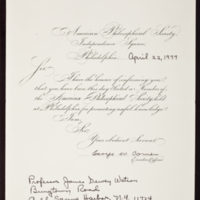 American Philosophical Society,
Independence Square,
Philadelphia, April 22, 1977
Sir,
I have the honour of informing you
that you have been this day Elected a Member of
the American Philosophical Society held
at Philadelphia for promoting useful knowledge.
I am,
Sir,
Your obedient Servant
George W. Corner
Executive Officer
Professor James Dewey Watson
Bungtown Road
Cold Spring Harbor, N.Y. 11724